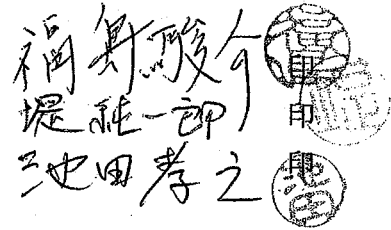 福島駿介 印
堤純一郎 印
池田孝之 印